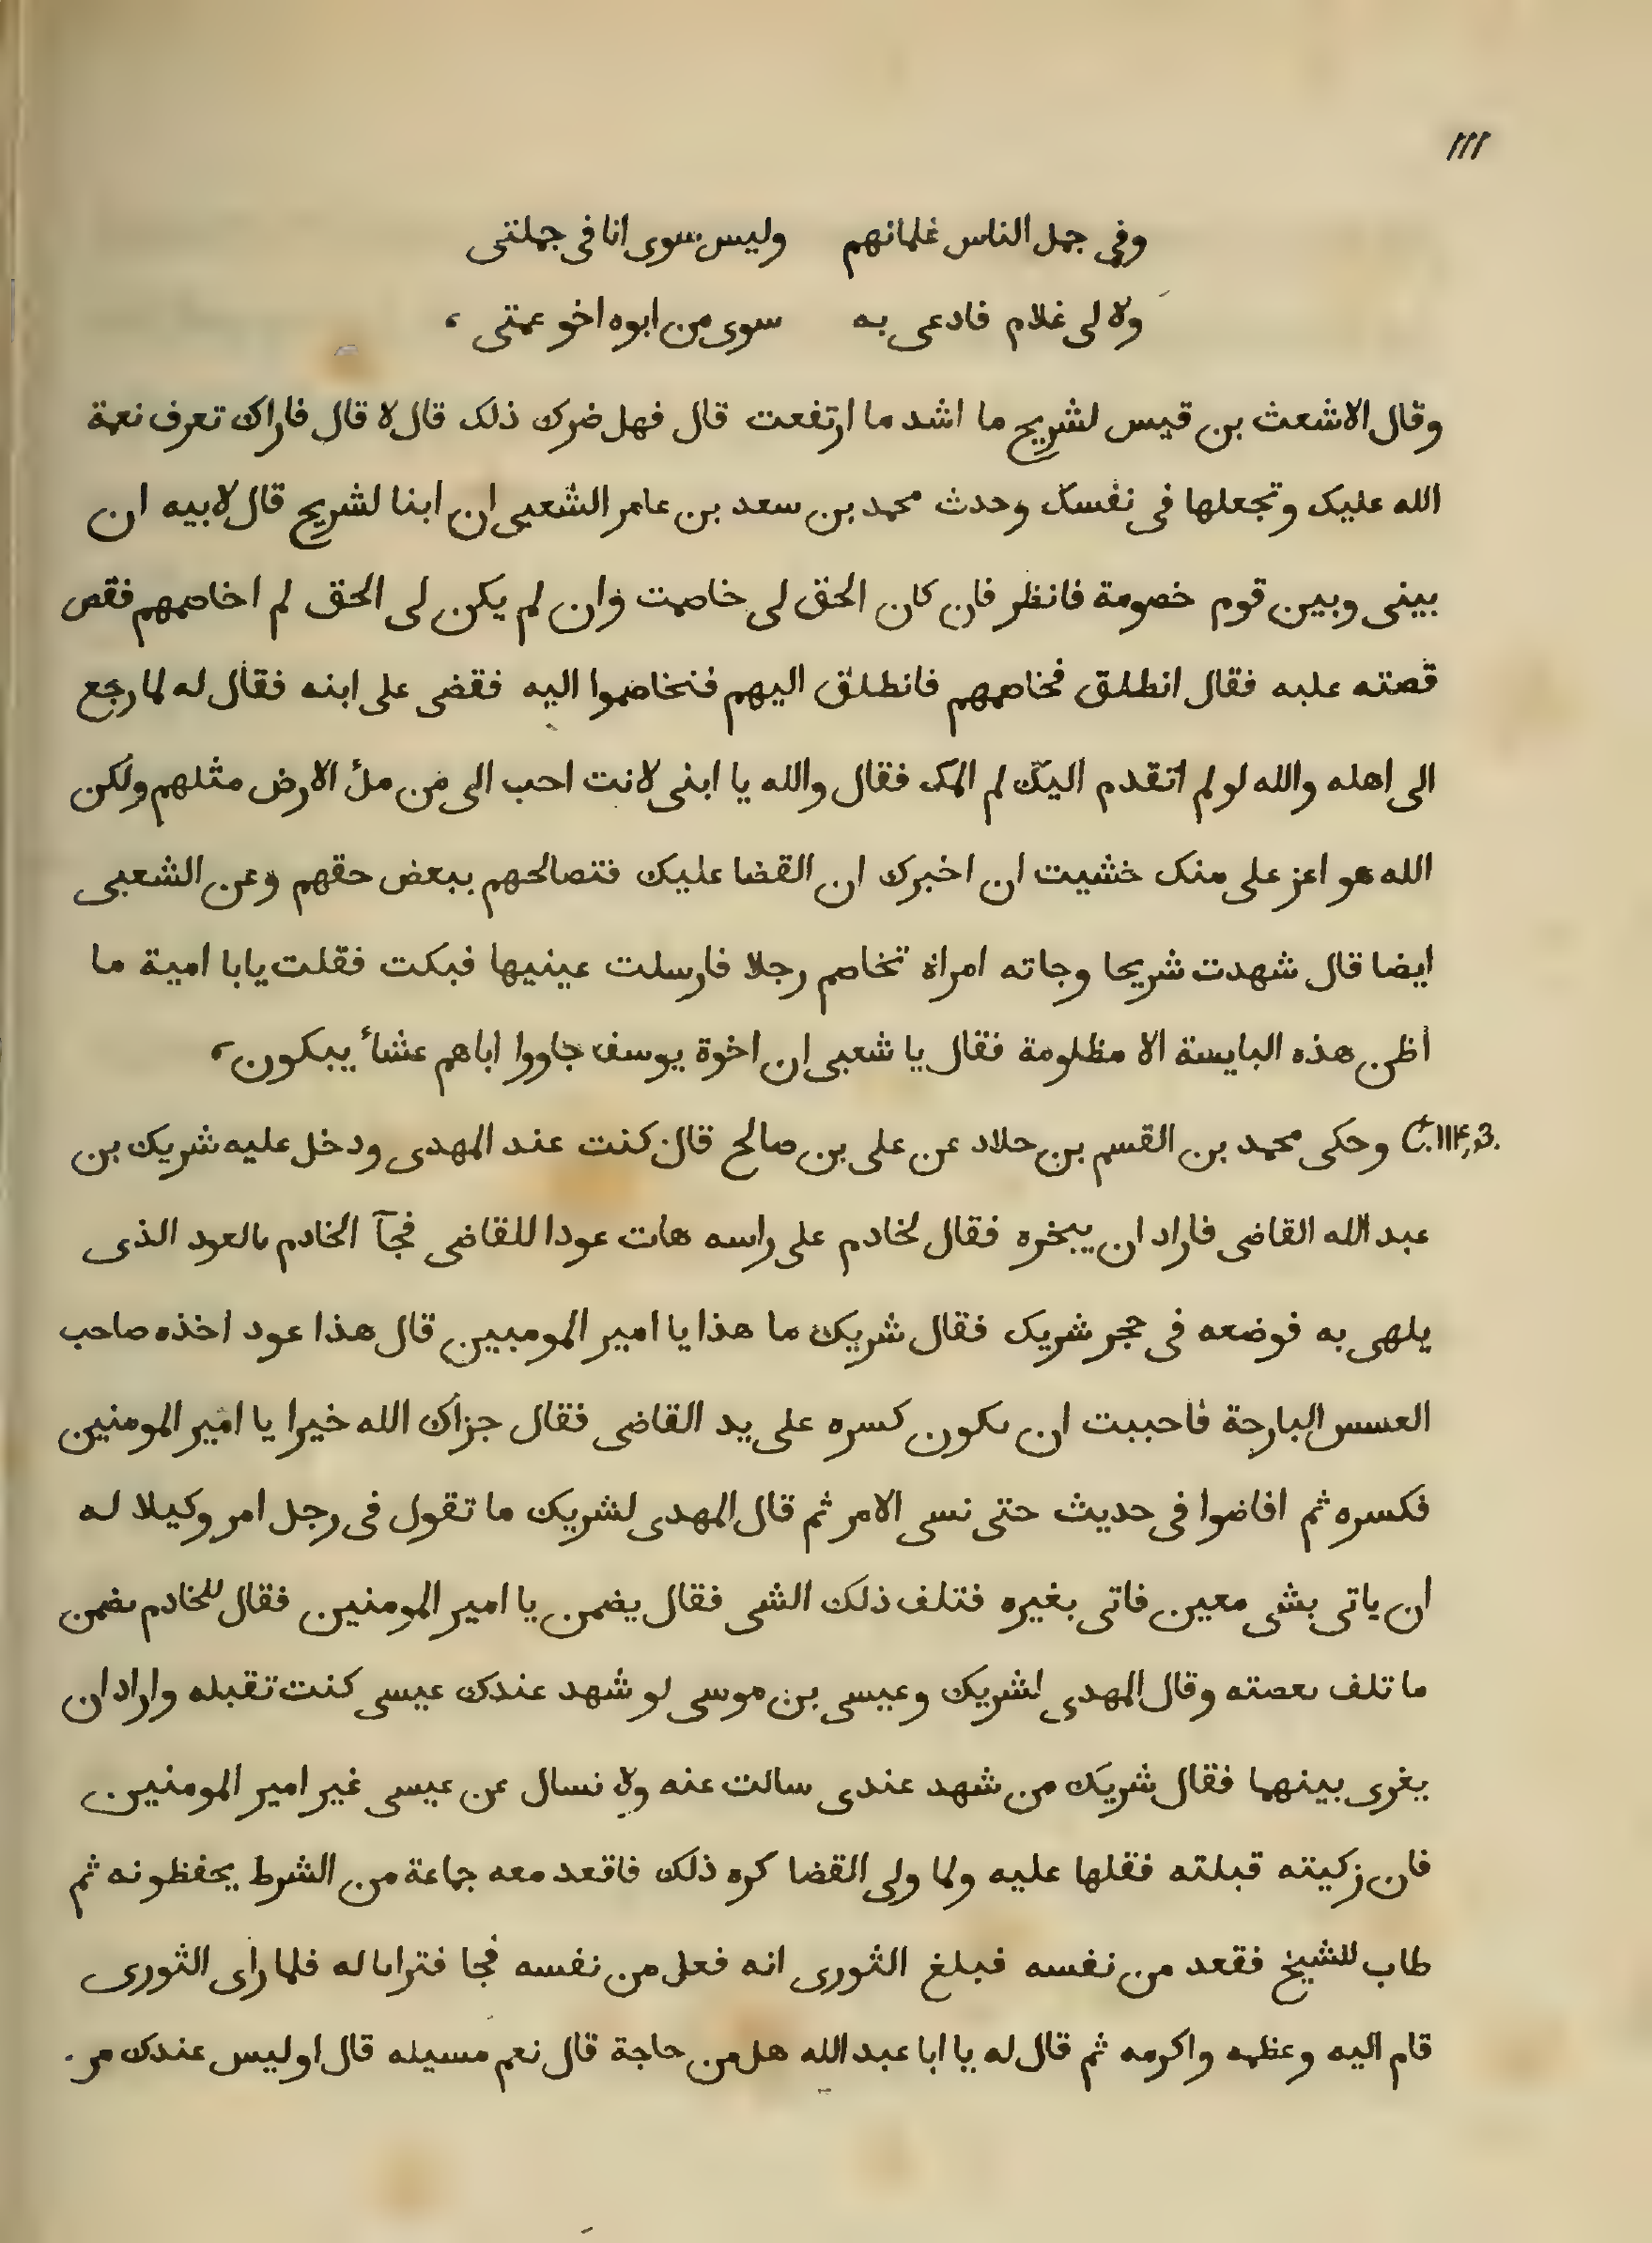 ١١١
وفي جمل الناس غلمانهم وليس سوى انا فى جملتى
ولا لى غلام فادعى به سوى من ابوه اخو عمتى ،
وقال الاشعث بن قيس لشريح ما اشد ما ارتفعت قال فهل ضرك ذلك قال لا قال فاراك تعرف نعمة
الله عليك وتجعلها فى نفسك وحدث محمد بن سعد بن عامر الشعبى ان ابنا لشريح قال لابيه ان
بينى وبين قوم خصومة فانظر فان كان الحق لى خاصمت وان لم يكن لى الحق لم اخاصمهم فقص
قصته عليه فقال انطلق فخاصمهم فانطلق اليهم فتخاصموا اليه فقضى على ابنه فقال له لما رجع
الى اهله والله لو لم اتقدم اليك لم المك فقال والله يا ابنى لانت احب الى من ملأ الارض مثلهم ولكن
الله هو اعز على منك خشيت ان اخبرك ان القضا عليك فتصالحهم ببعض حقهم وعن الشعبى
ايضا قال شهدت شريحا وجاته امراة تخاصم رجلا فارسلت عينيها فبكت فقلت يابا امية ما
اظن هذه البايسة الا مظلومة فقال يا شعبى ان اخوة يوسف جاووا اباهم عشاء يبكون،
C.114,3. وحكى محمد بن القسم بن حلاد عن على بن صالح قال كنت عند المهدى ودخل عليه شريك بن
عبد الله القاضى فاراد ان يبخره فقال لخادم على راسه هات عودا للقاضى فجآ الخادم بالعود الذى
يلهى به فوضعه فى حجر شريك فقال شريك ما هذا يا امير المومبين قال هذا عود اخذه صاحب
العسس البارحة فاحببت ان يكون كسره على يد القاضى فقال جزاك الله خيرا يا امير المومنين
فكسره ثم افاضوا فى حديث حتى نسى الامر ثم قال المهدى لشريك ما تقول فى رجل امر وكيلا له
ان ياتى بشى معين فاتى بغيره فتلف ذلك الشى فقال يضمن يا امير المومنين فقال للخادم يضمن
ما تلف بعصته وقال المهدى لشريك وعيسى بن موسى لو شهد عندك عيسى كنت تقبله واراد ان
يغرى بينهما فقال شريك من شهد عندى سالت عنه ولا نسال عن عيسى غير امير المومنين
فان زكيته قبلته فقلها عليه ولما ولى القضا كره ذلك فاقعد معه جماعة من الشرط يحفظونه ثم
طاب للشيخ فقعد من نفسه فبلغ الثورى انه فعل من نفسه فجا فتراىا له فلما راى الثورى
قام اليه وعظمه واكرمه ثم قال له يا ابا عبد الله هل من حاجة قال نعم مسيله قال اوليس عندك مر